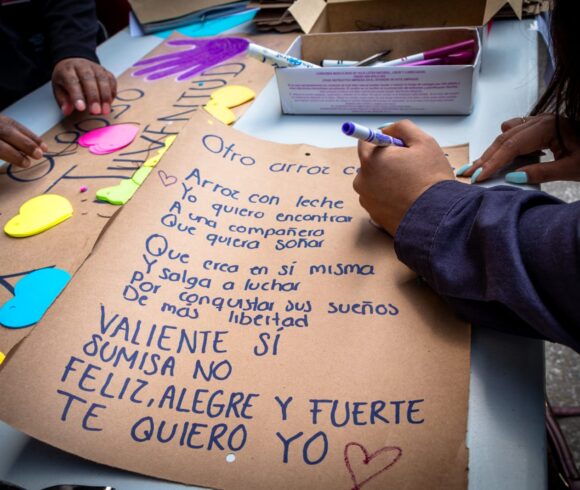 Juventud
Otro arroz co
Arroz con leche
Yo quiero encontrar
A una compañera
Que quiera soñar
Que crea en sí misma
Y salga a luchar
por conquistar sus sueños
De más libertad
VALIENTE SÍ
SUMISA NO
FELIZ, ALEGRE Y FUERTE
TE QUIERO YO